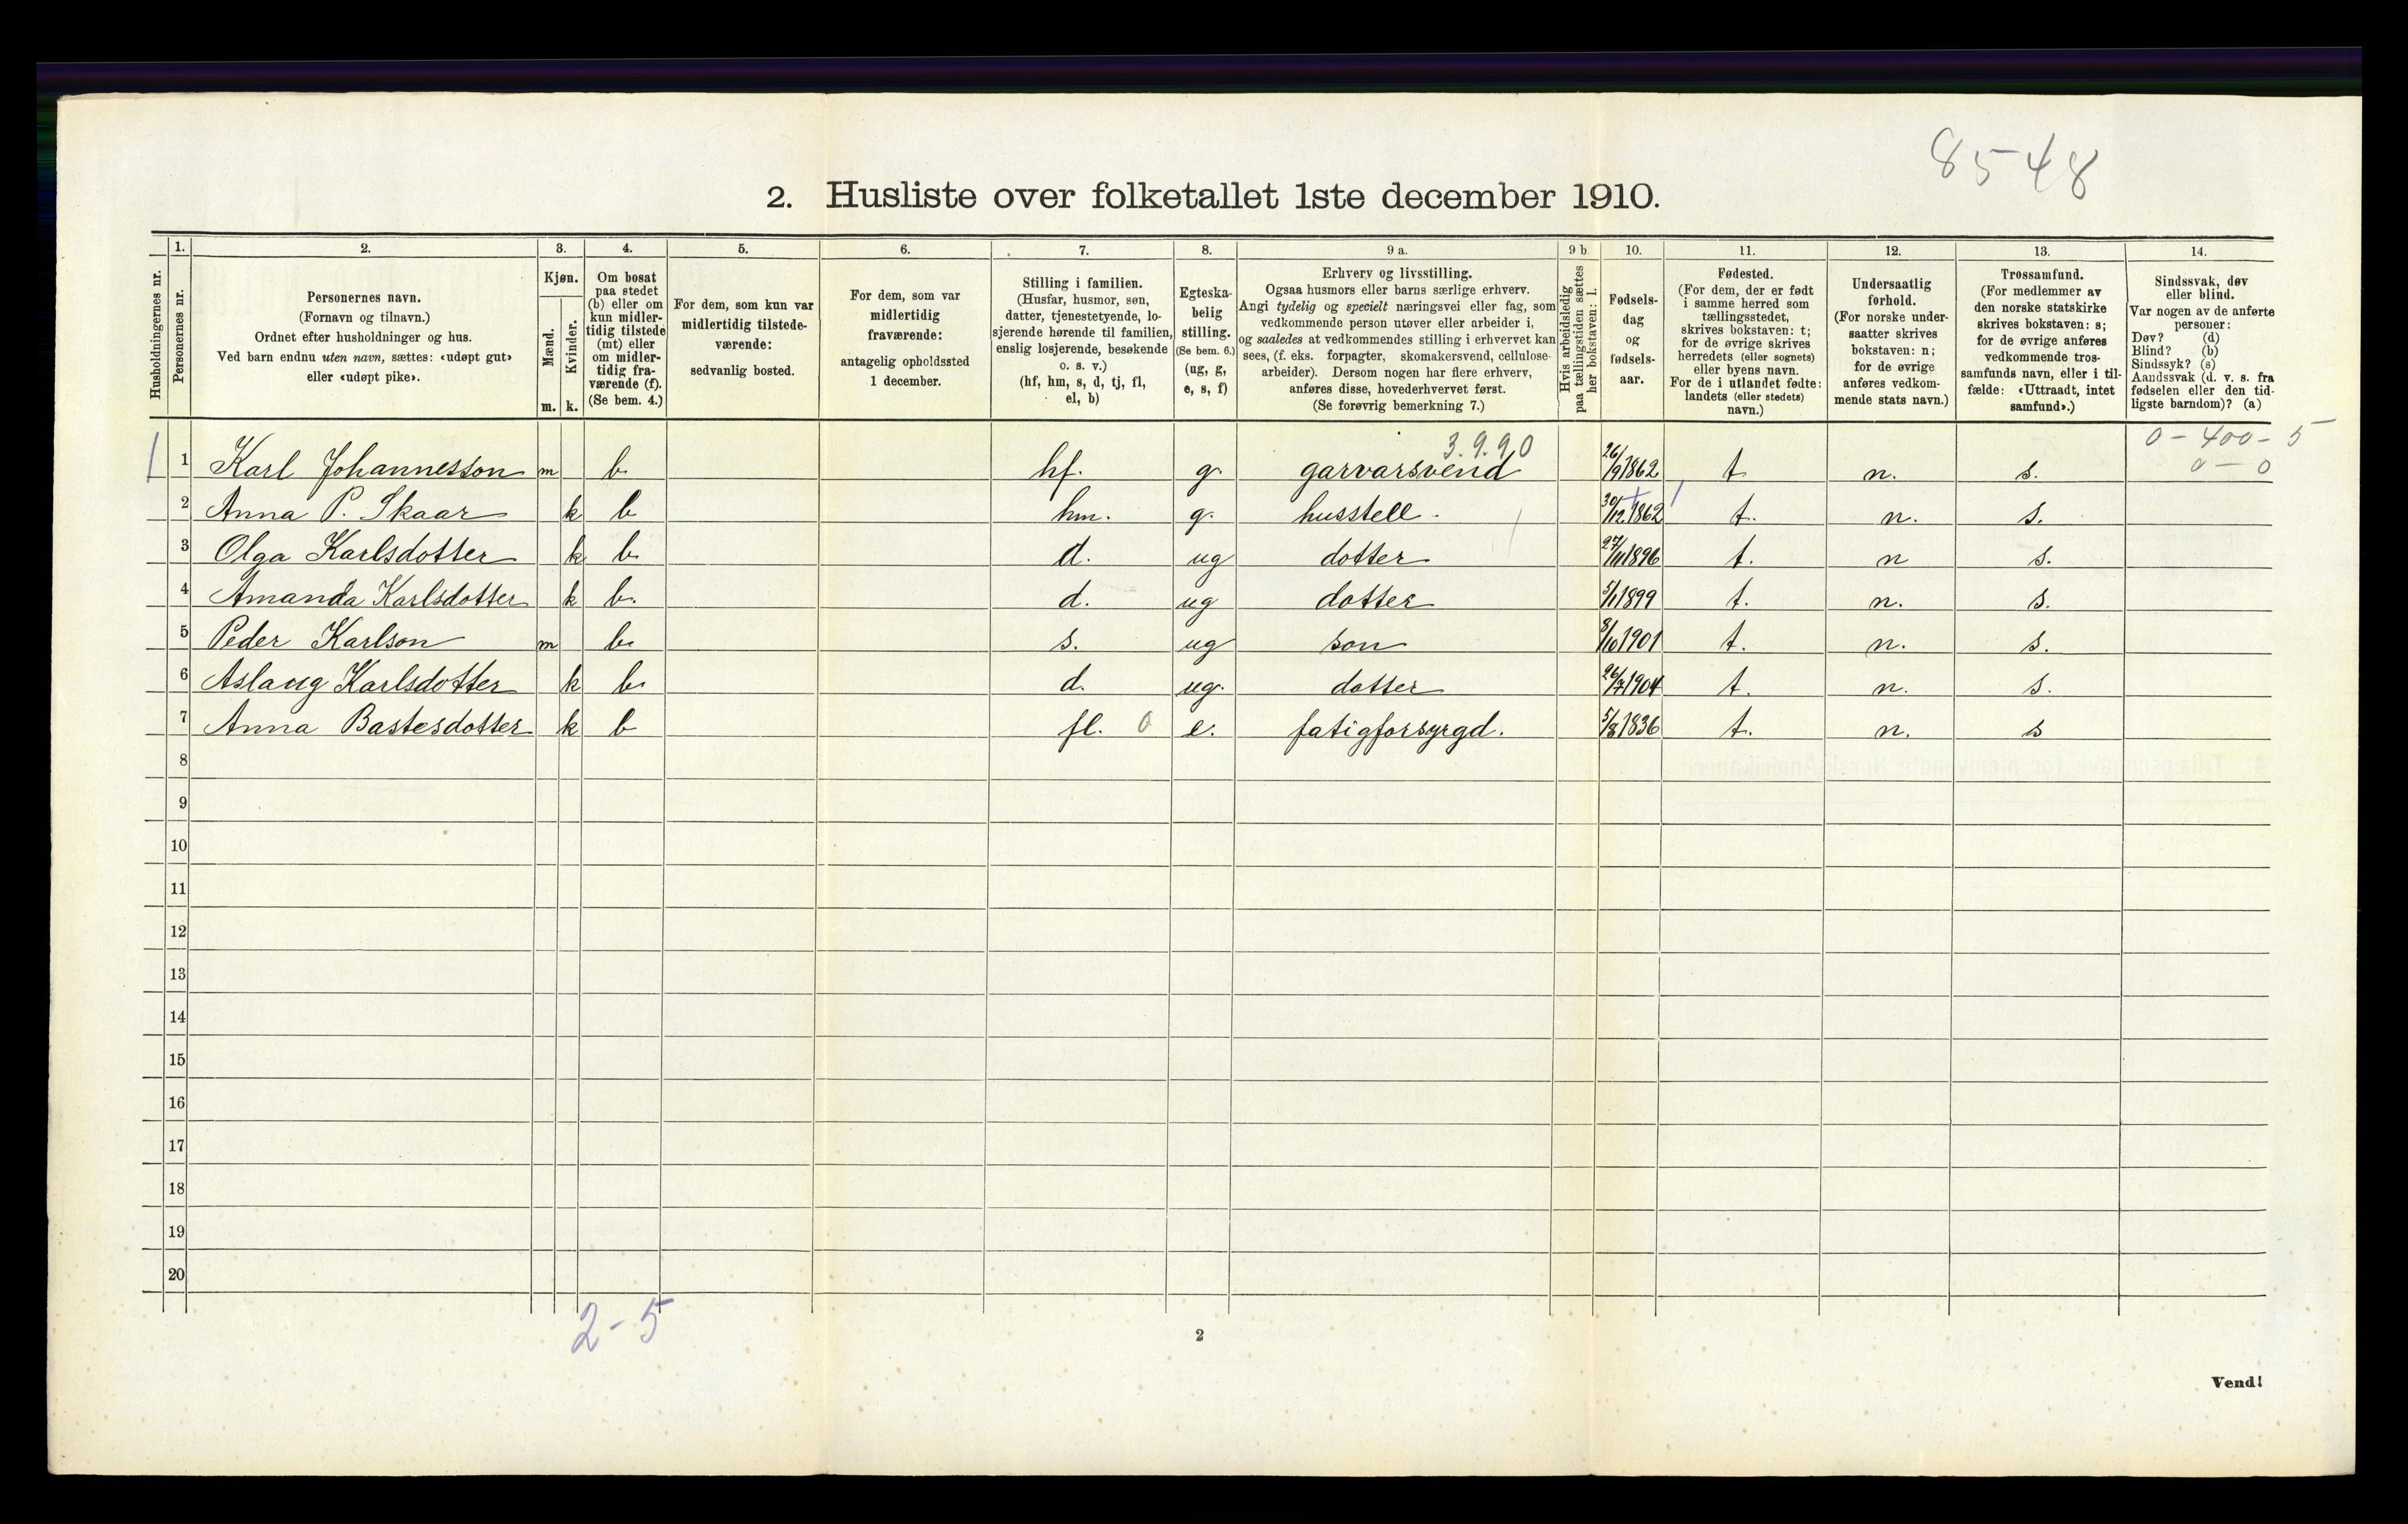 8548
2. Husliste over folketallet 1ste december 1910.
Husholdningernes nr.
1. Personernes nr.
2. Personernes navn. (Fornavn og tilnavn.) Ordnet efter husholdninger og hus. Ved barn endnu uten navn, sættes: «udøpt gut» eller «udøpt pike».
3. Kjøn. Mænd. m. Kvinder. k.
4. Om bosat paa stedet (b) eller om kun midlertidig tilstede (mt) eller om midlertidig fraværende (f). (Se bem. 4.)
5. For dem, som kun var midlertidig tilstedeværende: sedvanlig bosted.
6. For dem, som var midlertidig fraværende: antagelig opholdssted 1 december.
7. Stilling i familien. (Husfar, husmor, søn, datter, tjenestetyende, losjerende hørende til familien, enslig losjerende, besøkende o. s. v.) (hf, hm, s, d, tj, fl, el, b)
8. Egteskabelig stilling. (Se bem. 6.) (ug, g, e, s, f)
9 a. Erhverv og livsstilling. Ogsaa husmors eller barns særlige erhverv. Angi tydelig og specielt næringsvei eller fag, som vedkommende person utøver eller arbeider i, og saaledes at vedkommendes stilling i erhvervet kan sees, (f. eks. forpagter, skomakersvend, cellulosearbeider). Dersom nogen har flere erhverv, anføres disse, hovederhvervet først. (Se forøvrig bemerkning 7.)
9 b. Hvis arbeidsledig paa tællingstiden sættes her bokstaven: l.
10. Fødselsdag og fødselsaar.
11. Fødested. (For dem, der er født i samme herred som tællingsstedet, skrives bokstaven: t; for de øvrige skrives herredets (eller sognets) eller byens navn. For de i utlandet fødte: landets (eller stedets) navn.)
12. Undersaatlig forhold. (For norske undersaatter skrives bokstaven: n; for de øvrige anføres vedkommende stats navn.)
13. Trossamfund. (For medlemmer av den norske statskirke skrives bokstaven: s; for de øvrige anføres vedkommende trossamfunds navn, eller i tilfælde: «Uttraadt, intet samfund».)
14. Sindssvak, døv eller blind. Var nogen av de anførte personer: Døv? (d) Blind? (b) Sindssyk? (s) Aandssvak (d. v. s. fra fødselen eller den tidligste barndom)? (a)
3.9.90 0-400-5
1 1 Karl Johannesson m b. hf. g. garvarsvend 26/9 1862 t n. s. 0-0
2 Anna P. Skaar k b hm. g. husstell. 30/12 1862 t. n. s.
3 Olga Karlsdotter k b. d. ug dotter 27/11 1896 t. n s.
4 Amanda Karlsdotter k b. d. ug dotter 5/1 1899 t. n. s.
5 Peder Karlson m b. s. ug son 8/10 1901 t. n. s.
6 Aslaug Karlsdotter k b. d. ug. dotter 26/7 1904 t. n. s.
7 Anna Bastesdotter k b fl. 0 e. fatigforsyrgd. 5/8 1836 t. n. s
8
9
10
11
12
13
14
15
16
17
18
19
20
2-5
2
Vend!